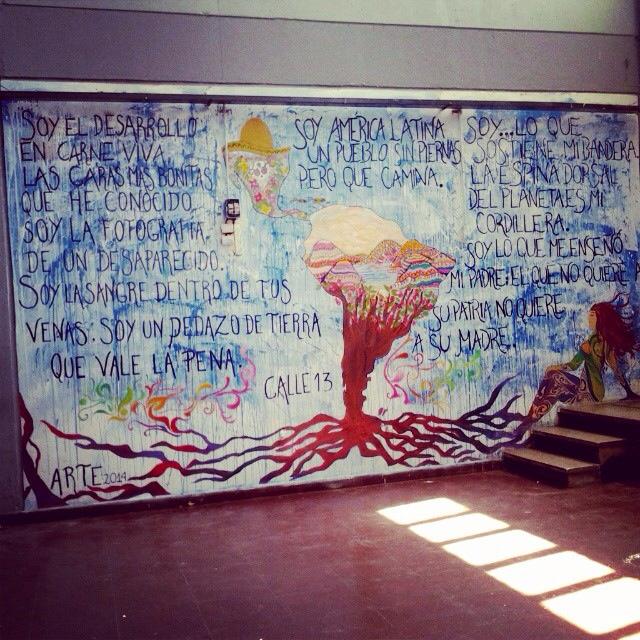 SOY EL DESARROLLO
EN CARNE VIVA.
LAS CARAS MAS BONITAS
QUE HE CONOCIDO.
SOY LA FOTOGRAFIA
DE UN DESAPARECIDO.
SOY LA SANGRE DENTRO DE TUS
VENAS. SOY UN PEDAZO DE TIERRA
QUE VALE LA PENA.
SOY AMÉRICA LATINA
UN PUEBLO SIN PIERNAS
PERO QUE CAMINA.
SOY...LO QUE
SOSTIENE MI BANDERA
LA ESPINA DORSAL
DEL PLANETA ES MI
CORDILLERA.
SOY LO QUE ME ENSEÑÓ
MI PADRE: EL QUE NO QUIERE
SU PATRIA NO QUIERE
A SU MADRE.
CALLE 13
ARTE 2014